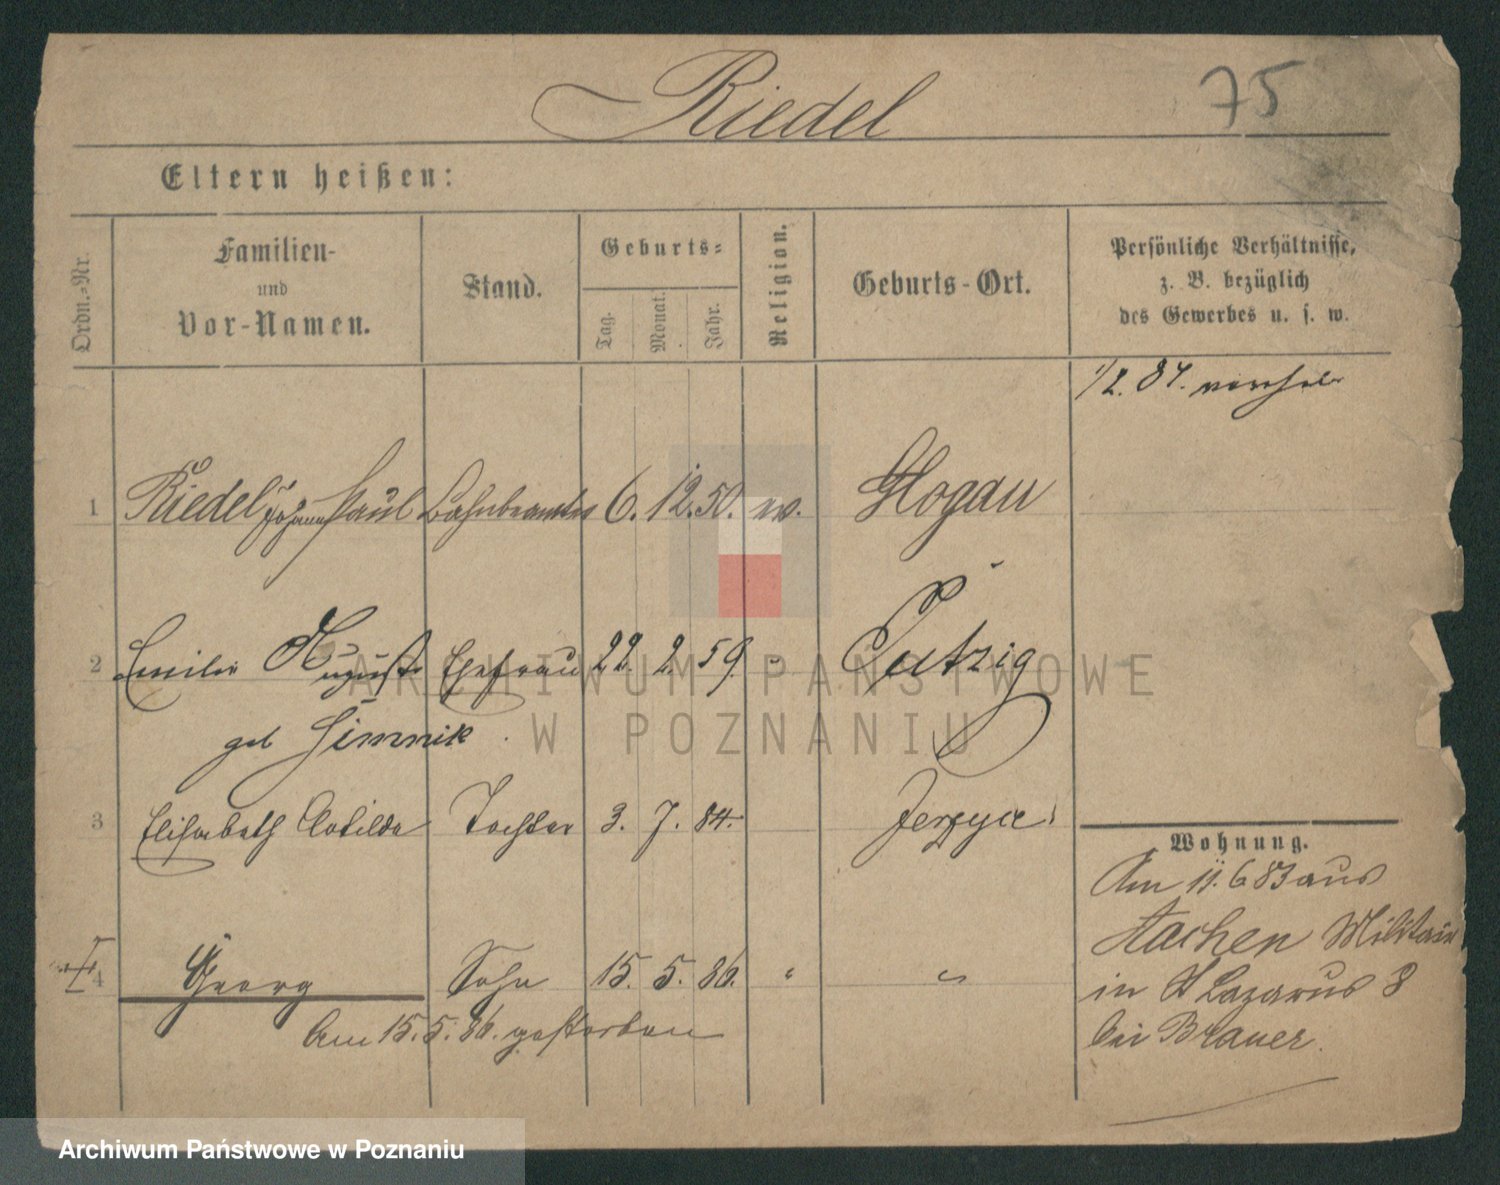 Riedel 75
Eltern heißen:
Ordn.-Nr.
Familien-
und
Vor-Namen.
Stand.
Geburts-
Tag.
Monat.
Jahr.
Religion.
Geburts-Ort.
Persönliche Verhältnisse,
z. B. bezüglich
des Gewerbes u. s. w.
1 Riedel Johann Paul Bahnbeamter 6. 12. 50. ev. Glogau
2 Emilie Auguste Ehefrau 22. 2. 59. " Putzig
geb
3 Elisabeth Clotilde Tochter 3. 7. 84. Jerzyce
4 Georg Sohn 15. 5. 86. " "
Am 15. 5. 86. gestorben
Wohnung.
Am 11. 6 83 aus
Aachen Militair
in St Lazarus 8
bei Brauer.
ARCHIWUM PAŃSTWOWE
W POZNANIU
Archiwum Państwowe w Poznaniu